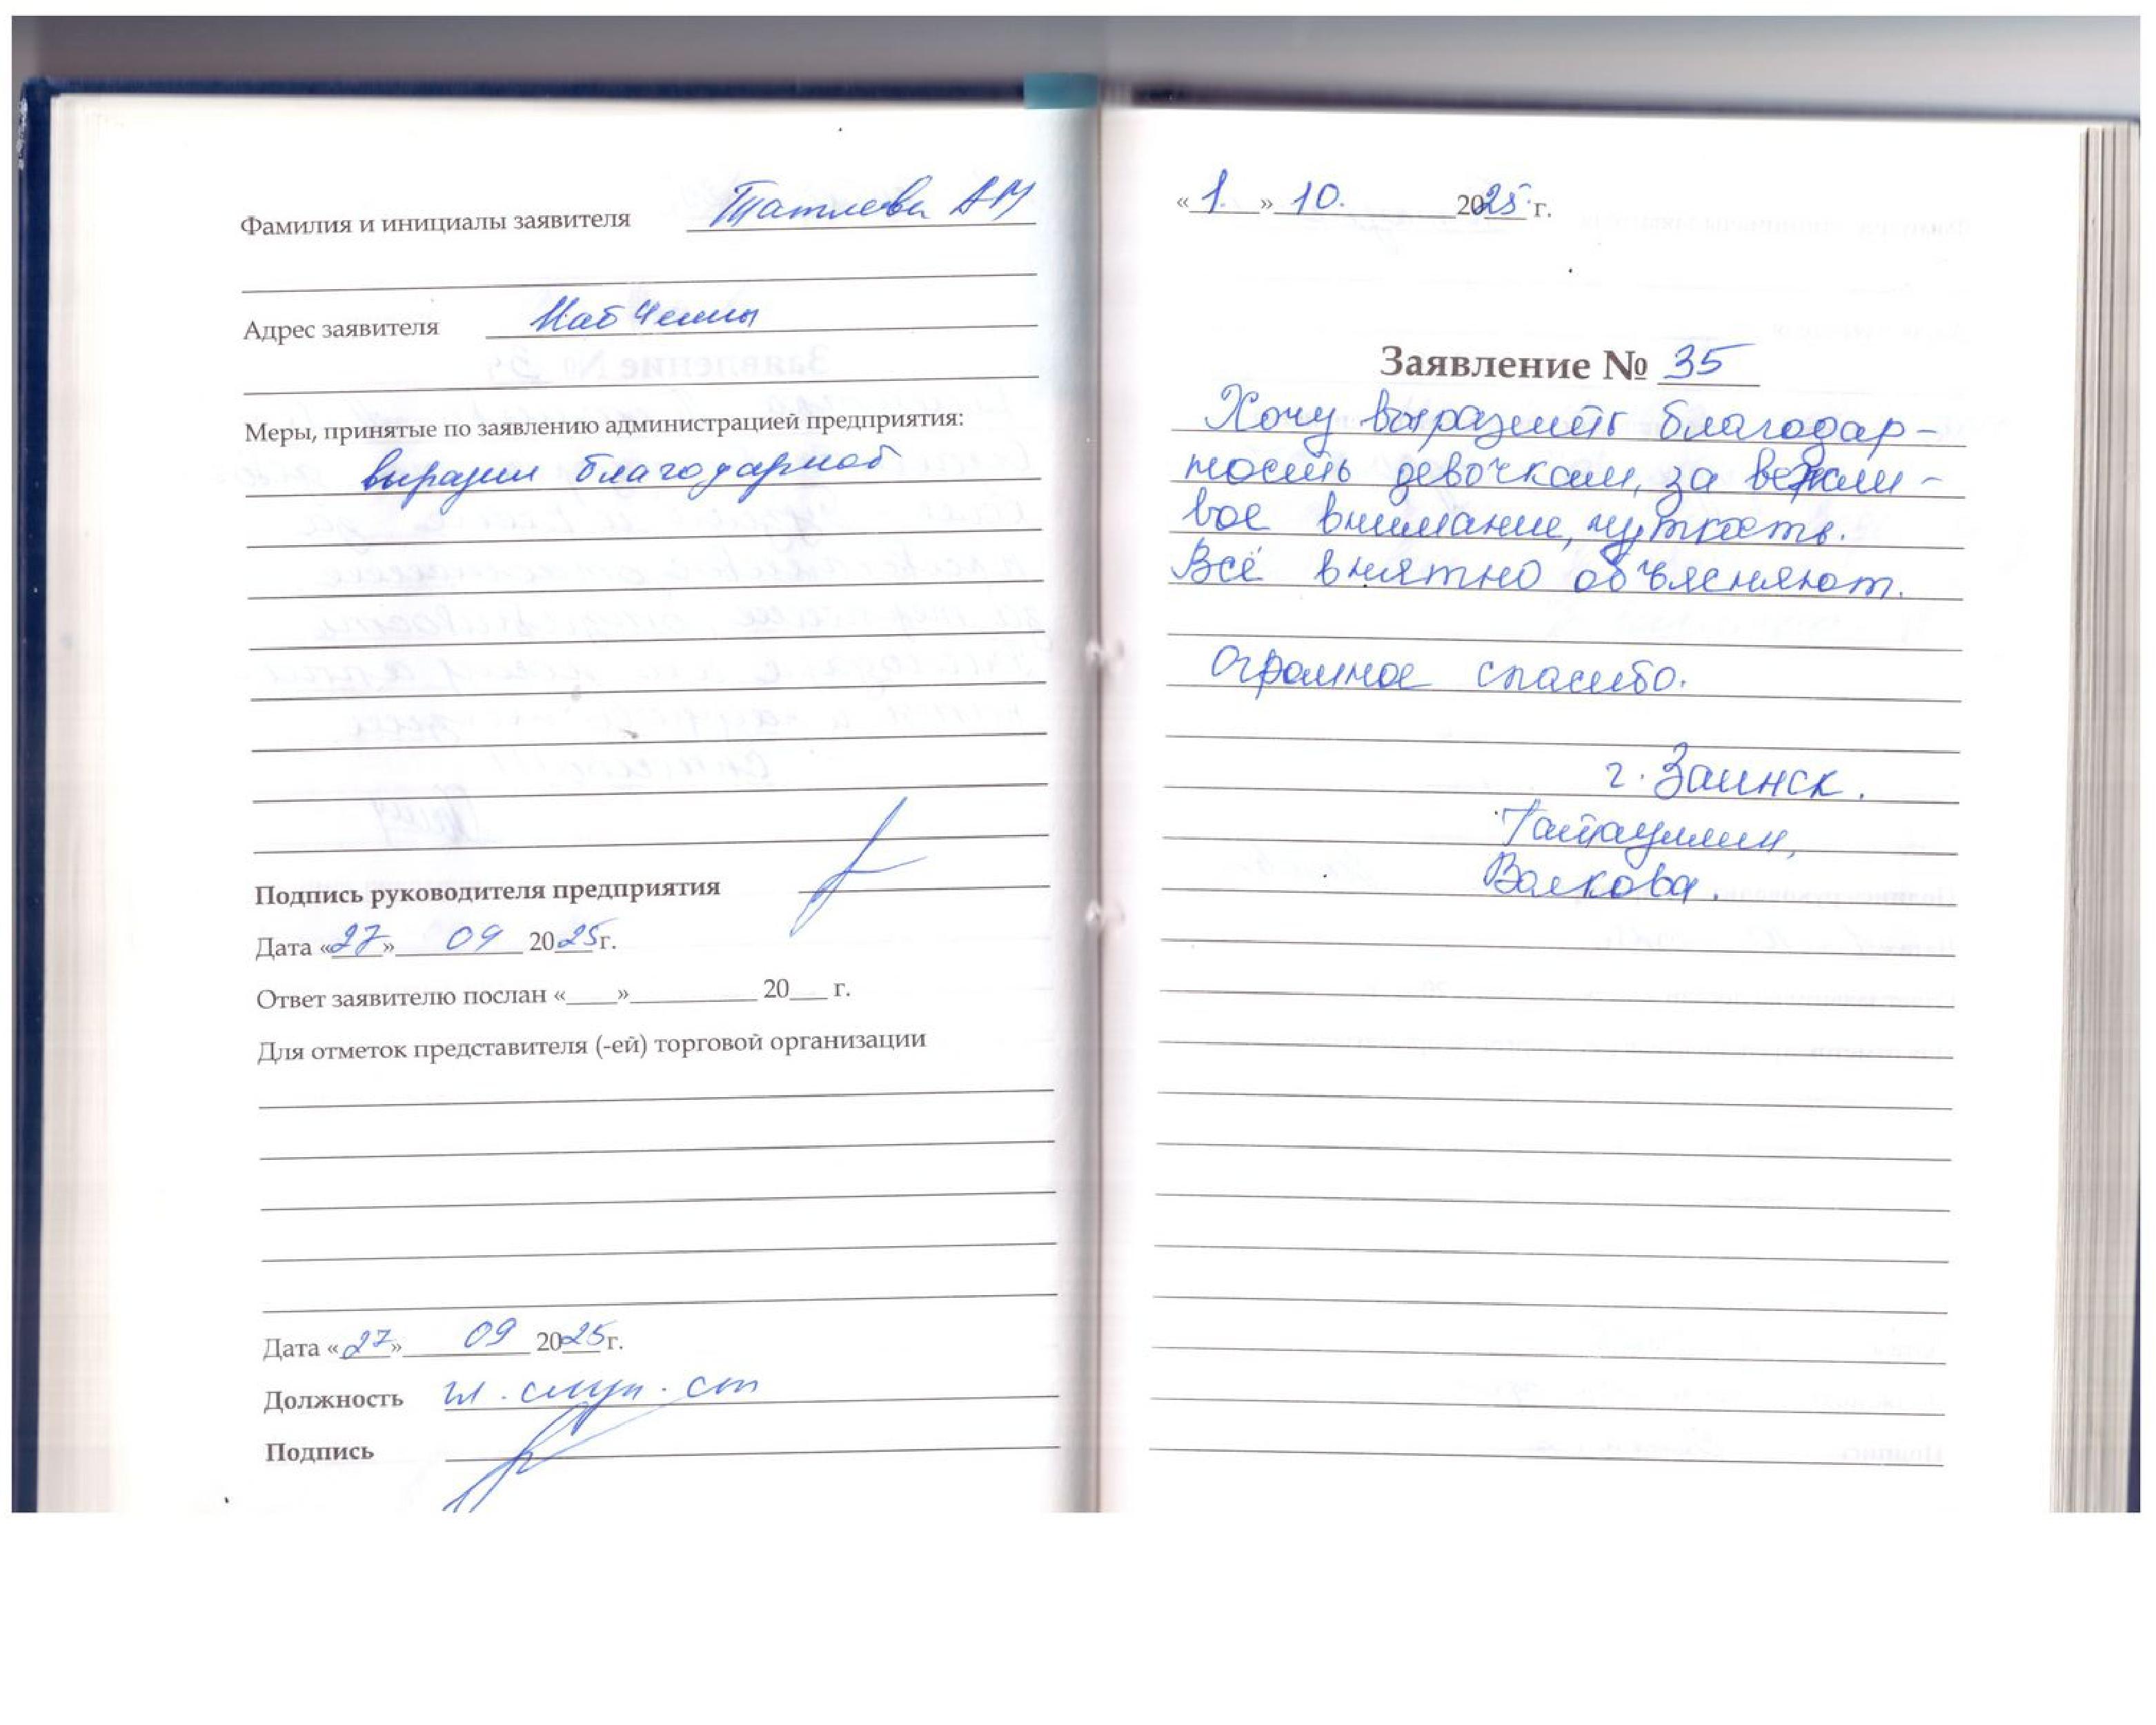 Фамилия и инициалы заявителя
Адрес заявителя Наб Челны
Меры, принятые по заявлению администрацией предприятия:
Подпись руководителя предприятия
Дата «27» 09 2025г.
Ответ заявителю послан «___»_________ 20__ г.
Для отметок представителя (-ей) торговой организации
Дата «27» 09 2025г.
Должность
Подпись
«1.» 10. 2025 г.
Заявление № 35
Хочу выразить благодар-
ность девочкам, за вежли-
вое внимание, чуткость.
Всё внятно объясняют.
Огромное спасибо.
г. Заинск.
Волкова.